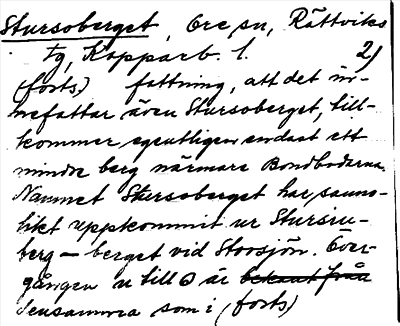 Stursoberget, Ore sn, Rättviks
tg, Kopparb. l. 2)
(forts) fattning, att det in-
nefattar även Stursoberget, till-
kommer egentligen endast ett
mindre berg närmare Bondbodarna.
Namnet Stursoberget har sanno-
likt uppkommit ur Stursru-
berg — berget vid Storsjön. Över-
gången u till o är bekant från
densamma som i (forts)